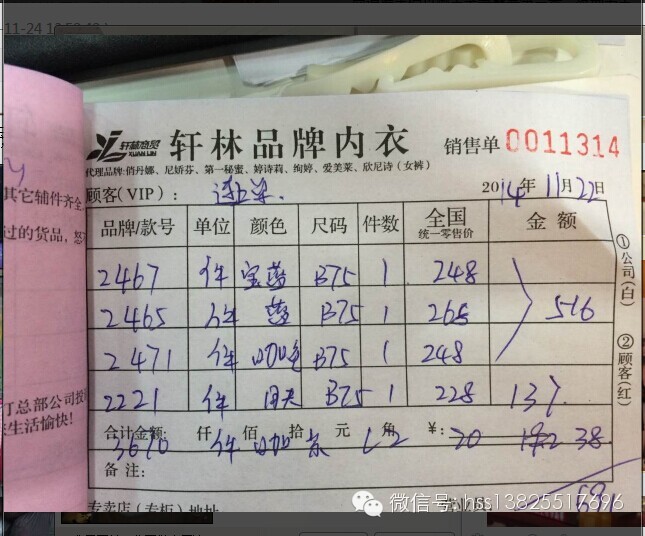 11-24
轩林商贸
XUAN LIN
轩林品牌内衣 销售单 0011314
代理品牌:俏丹娜、尼娇芬、第一秘蜜、婷诗莉、绚婷、爱美莱、欣尼诗(女裤)
顾客(VIP): 2014年11月22日
品牌/款号 单位 颜色 尺码 件数 全国统一零售价 金额
2467 件 宝蓝 B75 1 248
2465 件 蓝 B75 1 268 516
2471 件 咖啡色 B75 1 248
2221 件 B75 1 228 137
合计金额: 仟 佰 拾 元 角 ¥:
3676 件 L 2 70 38
备注:
①公司(白)
②顾客(红)
其它辅件齐全
过的货品,
丁总部公司按
生活愉快!
专卖店(专柜)地址
微信号: hss13825517696